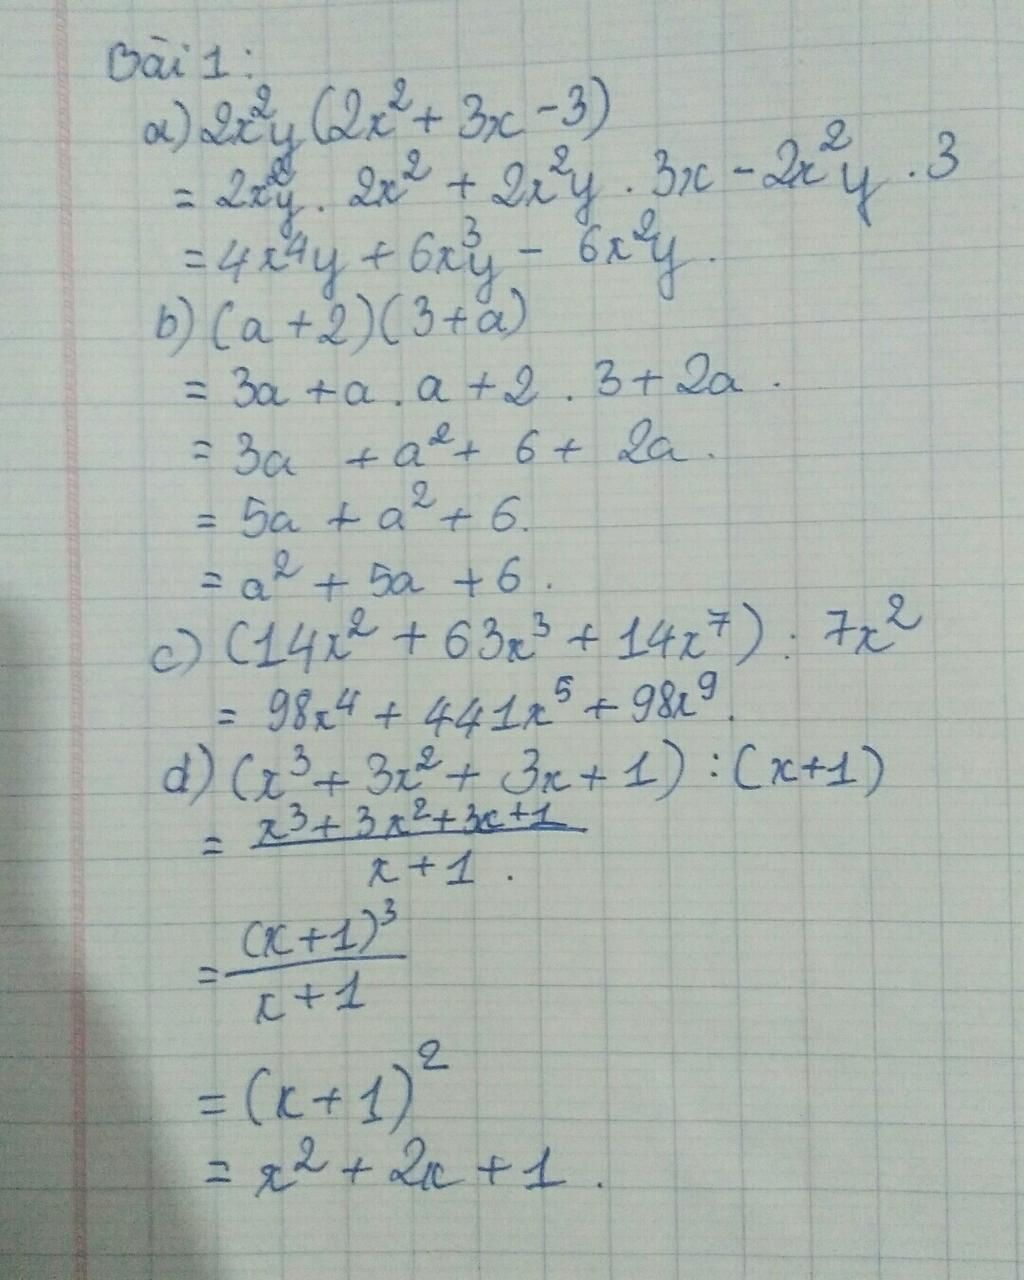 Bài 1:
a) 2x²y (2x² + 3x - 3)
= 2x²y . 2x² + 2x²y . 3x - 2x²y . 3
= 4x⁴y + 6x³y - 6x²y .
b) (a + 2)(3 + a)
= 3a + a . a + 2 . 3 + 2a .
= 3a + a² + 6 + 2a .
= 5a + a² + 6 .
= a² + 5a + 6 .
c) (14x² + 63x³ + 14x⁷) : 7x²
= 98x⁴ + 441x⁵ + 98x⁹ .
d) (x³ + 3x² + 3x + 1) : (x+1)
= x³ + 3x² + 3x + 1
x + 1 .
= (x+1)³
x + 1
= (x + 1)²
= x² + 2x + 1 .